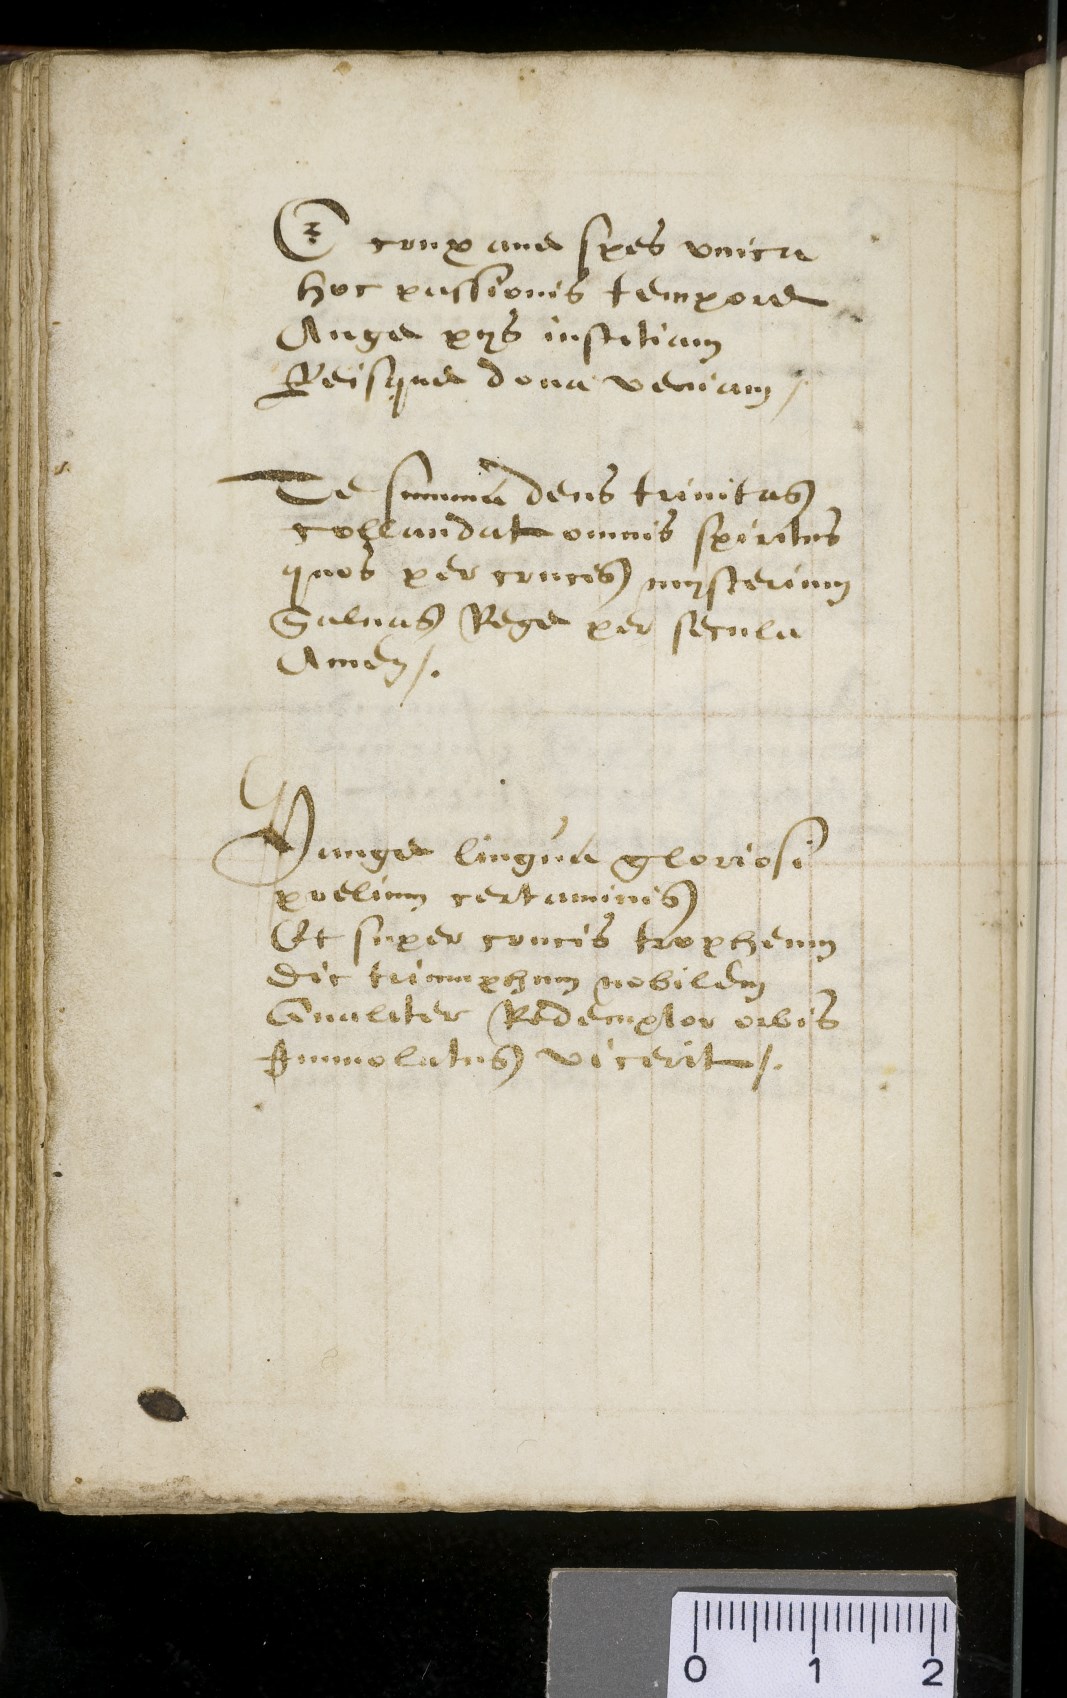 O crux aue spes vnica
hoc passionis tempore
Auge pijs iustitiam
Reisque dona veniam /
Te summa deus trinitas
collaudat omnis spiritus
quos per crucis mysterium
Saluas Rege per secula
Amen /.
Pange lingua gloriosi
proelium certaminis
Et super crucis tropheum
dic triumphum nobilem
Qualiter Redemptor orbis
Immolatus vicerit /.
0 1 2